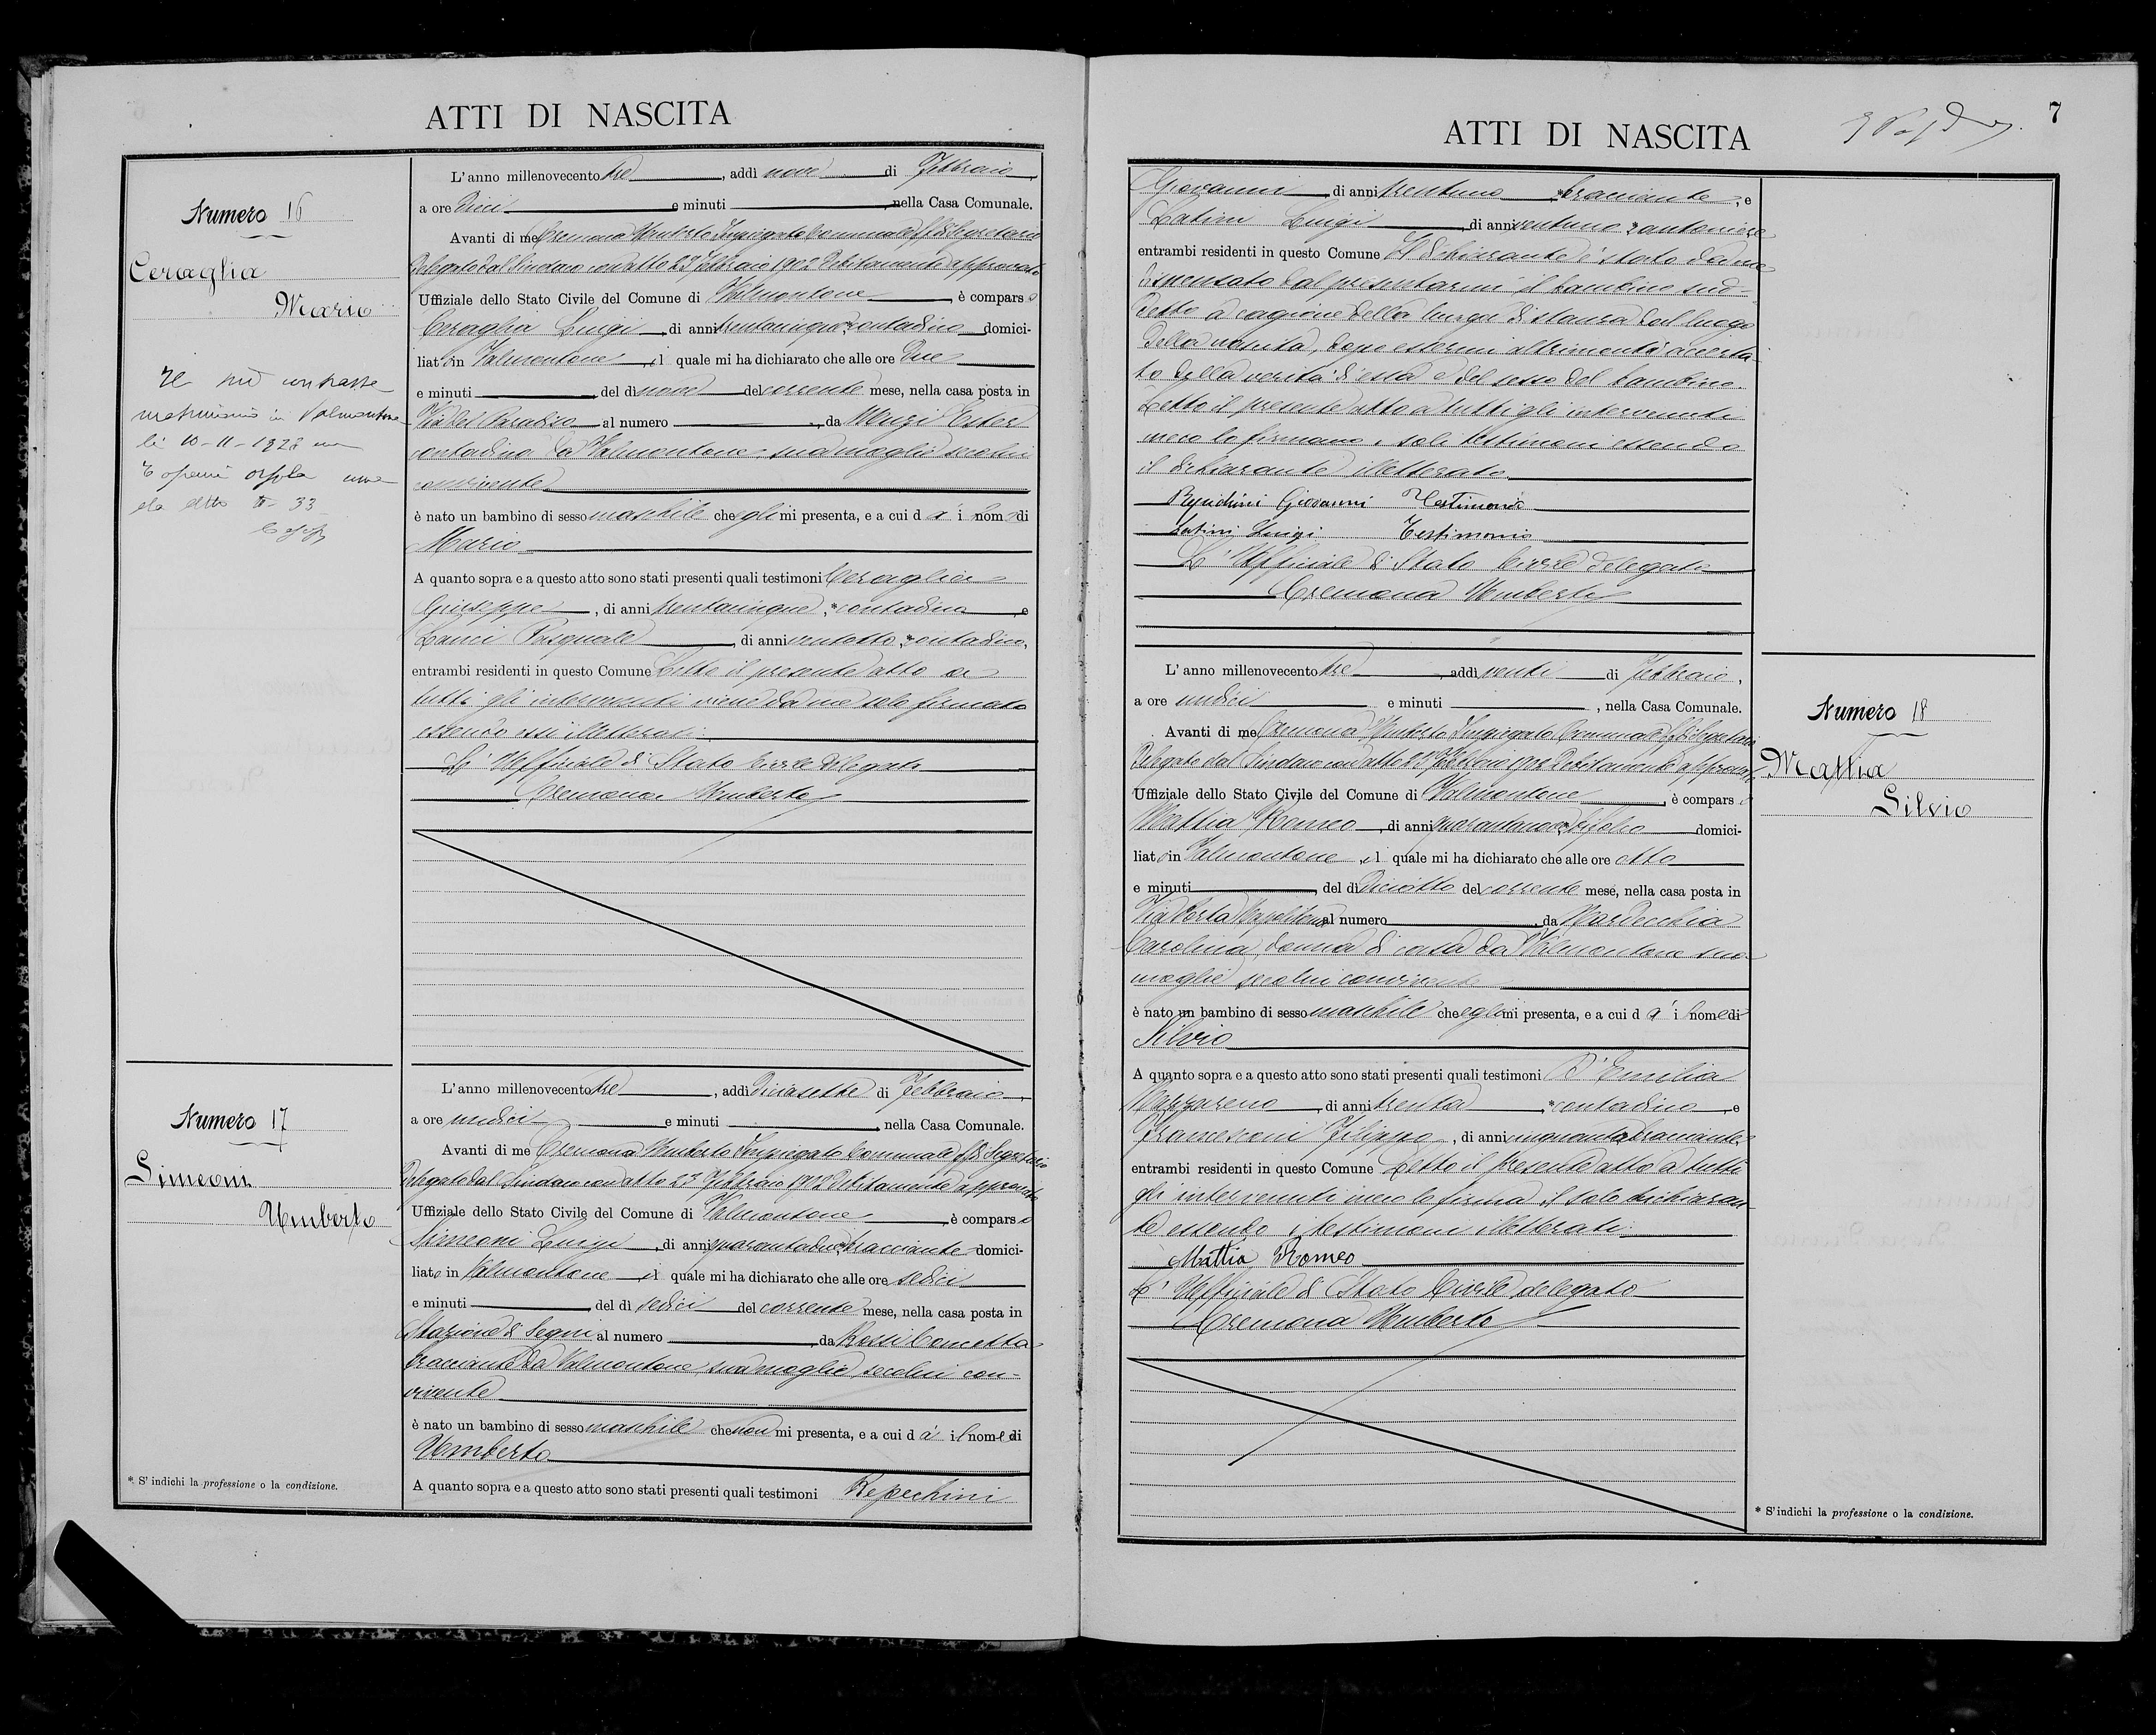 ATTI DI NASCITA
Numero 16
Ceraglia
Mario
Il
matrimonio in Valmontone
li 10-11-1928
33
L'anno millenovecento tre, addì nove di Febbraio,
a ore dieci e minuti, nella Casa Comunale.
Avanti di me Cremona Umberto Impiegato Comunale ff di Segretario
Delegato dal Sindaco con atto 23 Febbraio 1902 debitamente approvato
Uffiziale dello Stato Civile del Comune di Valmontone, è comparso
Ceraglia Luigi, di anni trentacinque, contadino domici-
liato in Valmontone, il quale mi ha dichiarato che alle ore due
e minuti, del dì nove del corrente mese, nella casa posta in
Via del Paradiso al numero, da Ester
contadina da Valmontone, sua moglie secolui
convivente
è nato un bambino di sesso maschile che egli mi presenta, e a cui dà il nome di
Mario
A quanto sopra e a questo atto sono stati presenti quali testimoni Ceraglia
Giuseppe, di anni trentacinque, *contadino, e
Lanci Pasquale, di anni ventotto, *contadino,
entrambi residenti in questo Comune Letto il presente atto a
tutti gli intervenuti viene da me solo firmato
essendo essi illetterati.
L'Ufficiale di Stato Civile delegato
Cremona Umberto
Numero 17
Simeoni
Umberto
L'anno millenovecento tre, addì diciasette di Febbraio,
a ore undici e minuti, nella Casa Comunale.
Avanti di me Cremona Umberto Impiegato Comunale ff di Segretario
Delegato dal Sindaco con atto 23 Febbraio 1902 debitamente approvato
Uffiziale dello Stato Civile del Comune di Valmontone, è comparso
Simeoni Luigi, di anni quarantadue, bracciante domici-
liato in Valmontone, il quale mi ha dichiarato che alle ore sedici
e minuti, del dì sedici del corrente mese, nella casa posta in
Stazione di Segni al numero, da Rossi Concetta
bracciante da Valmontone, sua moglie, secolui con-
vivente
è nato un bambino di sesso maschile che non mi presenta, e a cui dà il nome di
Umberto
A quanto sopra e a questo atto sono stati presenti quali testimoni Repechini
*. S'indichi la professione o la condizione.
ATTI DI NASCITA
7
Giovanni, di anni trentuno, *bracciante, e
Latini Luigi, di anni ventuno, *cantoniere
entrambi residenti in questo Comune Il dichiarante è stato da me
dispensato dal presentarmi il bambino sud-
detto a cagione della lunga distanza dal luogo
della nascita, dopo essermi altrimenti accerta-
to della verità di essa e del sesso del bambino.
Letto il presente atto a tutti gli intervenuti
meco lo firmano i soli testimoni essendo
il dichiarante illetterato
Repichini Giovanni Testimonio
Latini Luigi Testimonio
L'Ufficiale di Stato Civile delegato
Cremona Umberto
Numero 18
Mattia
Silvio
L'anno millenovecento tre, addì venti di Febbraio,
a ore undici e minuti, nella Casa Comunale.
Avanti di me Cremona Umberto Impiegato Comunale ff di Segretario
Delegato dal Sindaco con atto 23 Febbraio 1902 debitamente approvato
Uffiziale dello Stato Civile del Comune di Valmontone, è comparso
Mattia Romeo, di anni quarantanove, bifolco domici-
liato in Valmontone, il quale mi ha dichiarato che alle ore otto
e minuti, del dì diciotto del corrente mese, nella casa posta in
Via Porta Napolitana al numero, da Mardecchia
Carolina, donna di casa da Valmontone sua
moglie secolui convivente
è nato un bambino di sesso maschile che egli mi presenta, e a cui dà il nome di
Silvio
A quanto sopra e a questo atto sono stati presenti quali testimoni D'Emilia
Nazzareno, di anni trenta, *contadino, e
Franceschi Filippo, di anni cinquanta, bracciante,
entrambi residenti in questo Comune Letto il presente atto a tutti
gli intervenuti meco lo firma il solo dichiaran-
te essendo i testimoni illetterati.
Mattia Romeo
L'Ufficiale di Stato Civile delegato
Cremona Umberto
* S'indichi la professione o la condizione.